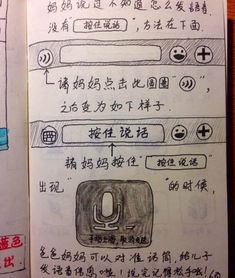 妈妈说是不知道怎么发语音
没有"按住说话",方法在下面.
请妈妈点击此图圈" ",
之后变为如下样子.
按住说话
请妈妈按住"按住说话"
出现" "的时候,
手指上滑,取消发送
爸爸妈妈可以对准话筒,给儿子
蓝色